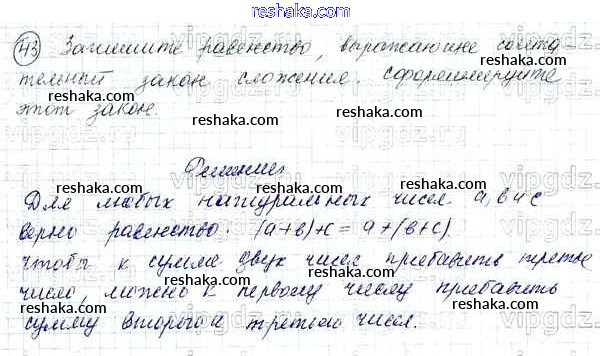 reshaka.com
43 Запишите равенство, выражающие сочета
тельный закон сложения. Сформулируйте
reshaka.com reshaka.com
этот закон.
Решение:
reshaka.com
Для любых натуральных чисел a, b и c
верно равенство: (a+b)+c = a+(b+c)
reshaka.com reshaka.com
Чтобы к сумме двух чисел прибавить третье
reshaka.com
число, можно к первому числу прибавить
reshaka.com reshaka.com
сумму второго и третьего чисел.